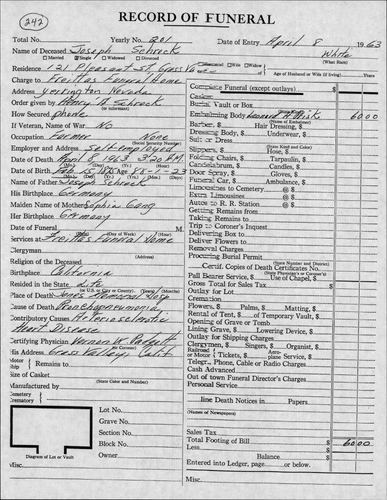 242
RECORD OF FUNERAL
Total No. Yearly No. 201 Date of Entry April 8 1963
Name of Deceased Joseph Schrock White
Married Single Widowed Divorced (What Race)
Residence 121 Pleasant St. Grass
Charge to Freitas Funeral Home
Address Yerington Nevada
Order given by Henry A Schrock
How Secured phone
If Veteran, Name of War No
Occupation Farmer None
(Social Security Number)
Employer and Address Self-employed
Date of Death April 6, 1963 3:20 PM
Date of Birth Feb 15, 1875 Age 88-1-23
Name of Father Joseph Schrock
His Birthplace Germany
Maiden Name of Mother Sophia Gang
Her Birthplace Germany
Date of Funeral M
(Date) (Day of Week) (Hour)
Services at Freitas Funeral Home
Clergyman (Address)
Religion of the Deceased
Birthplace California
Resided in the State Life
Place of Death Jones Memorial Hosp
Cause of Death Bronchopneumonia
Contributory Causes Arteriosclerotic
Heart Disease
Certifying Physician Vernon W. Padgett
His Address Grass Valley, Calif
Motor
Ship Remains to
Size of Casket
(State Color and Number)
Manufactured by
Cemetery
Crematory
Lot No.
Grave No.
Section No.
Block No.
Owner
Diagram of Lot or Vault
Misc.
Husband Wife Widow
Age of Husband or Wife (if living) Years
Complete Funeral (except outlays) $
Casket
Burial Vault or Box
Embalming Body 60 00
(Name of Embalmer)
Barber, $ Hair Dressing, $
Dressing Body, $ Underwear, $
Suit or Dress
(State Kind and Color)
Slippers, $ Hose, $
Folding Chairs, $ Tarpaulin, $
Candelabrum, $ Candles, $
Door Spray, $ Gloves, $
Funeral Car, $ Ambulance, $
Limousines to Cemetery @ $
Extra Limousines @ $
Autos to R. R. Station @ $
Getting Remains from
Taking Remains to
Trip to Coroner's Inquest
Delivering Box to
Deliver Flowers to
Removal Charges
Procuring Burial Permit
(State Number and District)
Certif. Copies of Death Certificates No.
(State Physician's or Coroner's)
Pall Bearer Service, $ Use of Chapel, $
Gross Total for Sales Tax $
Outlay for Lot
Cremation
Flowers, $ Palms, $ Matting, $
Rental of Tent, $ of Temporary Vault, $
Opening of Grave or Tomb
Lining Grave, $ Lowering Device, $
Outlay for Shipping Charges
Clergymen, $ Singers, $ Organist, $
Railroad or Motor Tickets, $ Aeroplane Service, $
Telegr., Phone, Cable or Radio Charges
Cash Advanced
Out of town Funeral Director's Charges
Personal Service
line Death Notices in Papers
(Names of Newspapers)
Sales Tax
Total Footing of Bill $ 60 00
Less $
Balance $
Entered into Ledger, page or below.
Misc.